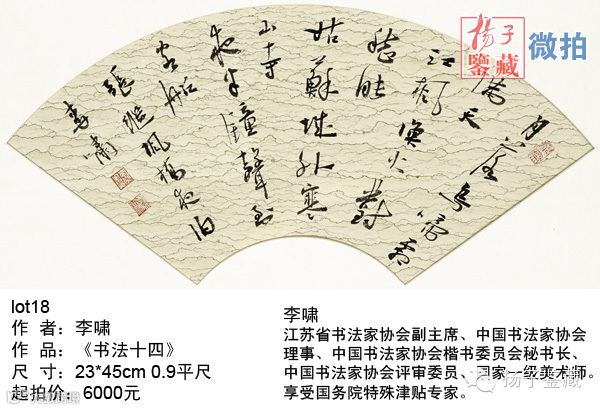 月落烏啼霜
滿天
江楓漁火對
愁眠
姑蘇城外寒
山寺
夜半鐘聲到
客船
張繼楓橋夜泊
李嘯
扬子
鉴藏
微拍
lot18
作 者：李啸
作 品：《书法十四》
尺 寸：23*45cm 0.9平尺
起拍价：6000元
李啸
江苏省书法家协会副主席、中国书法家协会
理事、中国书法家协会楷书委员会秘书长、
中国书法家协会评审委员、国家一级美术师。
享受国务院特殊津贴专家。
扬子鉴藏